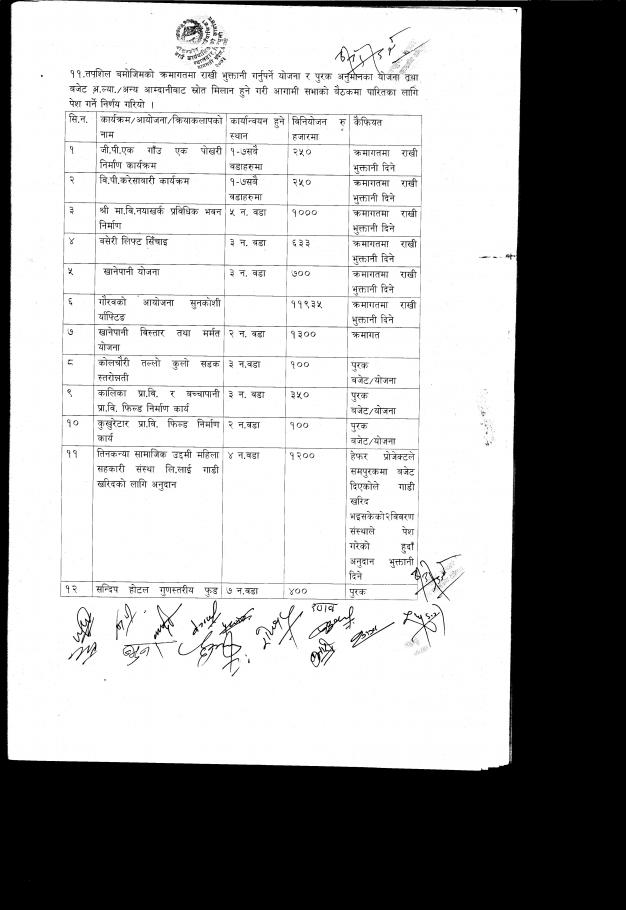 ११.तपशिल बमोजिमको क्रमागतमा राखी भुक्तानी गर्नुपर्ने योजना र पुरक अनुमानका योजना तथा
बजेट अ.ल्या./अन्य आम्दानीबाट स्रोत मिलान हुने गरी आगामी सभाको बैठकमा पारितका लागि
पेश गर्ने निर्णय गरियो ।
सि.न. कार्यक्रम/आयोजना/क्रियाकलापको कार्यान्वयन हुने विनियोजन रु कैफियत
नाम स्थान हजारमा
१ जी.पी.एक गाँउ एक पोखरी १-७सबै २५० क्रमागतमा राखी
निर्माण कार्यक्रम वडाहरुमा भुक्तानी दिने
२ बि.पी.करेसावारी कार्यक्रम १-७सबै २५० क्रमागतमा राखी
वडाहरुमा भुक्तानी दिने
३ श्री मा.बि.नयाखर्क प्रविधिक भवन ५ न. वडा १००० क्रमागतमा राखी
निर्माण भुक्तानी दिने
४ बसेरी लिफ्ट सिँचाइ ३ न. वडा ६३३ क्रमागतमा राखी
भुक्तानी दिने
५ खानेपानी योजना ३ न. वडा ७०० क्रमागतमा राखी
भुक्तानी दिने
६ गौरवको आयोजना सुनकोशी ११९३५ क्रमागतमा राखी
र्याफ्टिङ भुक्तानी दिने
७ खानेपानी बिस्तार तथा मर्मत २ न. वडा १३०० क्रमागत
योजना
८ कोलचौरी तल्लो कुलो सडक ३ न.वडा १०० पुरक
स्तरोन्नती बजेट/योजना
९ कालिका प्रा.वि. र बच्चापानी ३ न. वडा ३५० पुरक
प्रा.वि. फिल्ड निर्माण कार्य बजेट/योजना
१० कुखुरेटार प्रा.वि. फिल्ड निर्माण २ न.वडा १०० पुरक
कार्य बजेट/योजना
११ तिनकन्या सामाजिक उद्दमी महिला ४ न.वडा १२०० हेफर प्रोजेक्टले
सहकारी संस्था लि.लाई गाडी समपुरकमा बजेट
खरिदको लागि अनुदान दिएकोले गाडी
खरिद
भइसकेको२बिवरण
संस्थाले पेश
गरेको हुदाँ
अनुदान भुक्तानी
दिने
१२ सन्दिप होटल गुणस्तरीय फुड ७ न.वडा ४०० पुरक